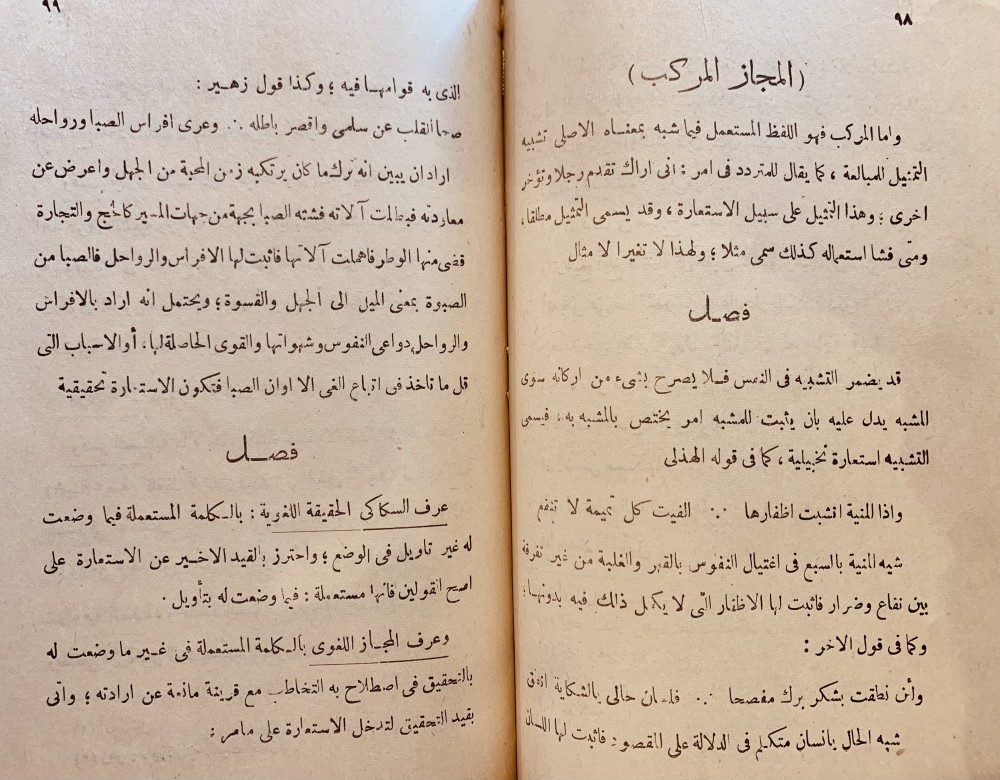 ٩٨
(المجاز المركب)
واما المركب فهو اللفظ المستعمل فيما شبه بمعناه الاصلى تشبيه
التمثيل للمبالغة ، كما يقال للمتردد فى امر : انى اراك تقدم رجلا وتؤخر
اخرى ؛ وهذا التمثيل على سبيل الاستعارة ، وقد يسمى التمثيل مطلقا ،
ومتى فشا استعماله كذلك سمى مثلا ؛ ولهذا لا تغير الامثال
فصل
قد يضمر التشبيه فى النفس فلا يصرح بشىء من اركانه سوى
المشبه يدل عليه بان يثبت للمشبه امر يختص بالمشبه به ، فيسمى
التشبيه استعارة تخييلية ، كما فى قوله الهذلى
واذا المنية انشبت اظفارها ∴ الفيت كل تميمة لا تنفع
شبه المنية بالسبع فى اغتيال النفوس بالقهر والغلبة من غير تفرقة
بين نفاع وضرار فاثبت لها الاظفار التى لا يكمل ذالك فيه بدونها ؛
وكما فى قول الاخر :
ولئن نطقت بشكر برك مفصحا ∴ فلسان حالى بالشكاية انطق
شبه الحال بانسان متكلم فى الدلالة على المقصود فاثبت لها اللسان
٩٩
الذى به قوامها فيه ؛ وكذا قول زهير :
صحا القلب عن سلمى واقصر باطله ∴ وعرى افراس الصبا ورواحله
اراد ان يبين انه ترك ما كان يرتكبه زمن المحبة من الجهل واعرض عن
معاودته فبطلت آلاته فشبه الصبا بجهة من جهات المسير كالحج والتجارة
قضى منها الوطر فاهملت آلاتها فاثبت لها الافراس والرواحل فالصبا من
الصبوة بمعنى الميل الى الجهل والفسوة ؛ ويحتمل انه اراد بالافراس
والرواحل دواعى النفوس وشهواتها والقوى الحاصلة لها ، أو الاسباب التى
قل ما تاخذ فى اتباع الغى الا اوان الصبا فتكون الاستعارة تحقيقية
فصل
عرف السكاكى الحقيقة اللغوية : بالكلمة المستعملة فيما وضعت
له غير تاويل فى الوضع ؛ واحترز بالقيد الاخير عن الاستعارة على
اصح القولين فانها مستعملة : فيما وضعت له بتأويل .
وعرف المجاز اللغوى بالكلمة المستعملة فى غير ما وضعت له
بالتحقيق فى اصطلاح به التخاطب مع قرينة مانعة عن ارادته ؛ واتى
بقيد التحقيق لتدخل الاستعارة على ما مر :